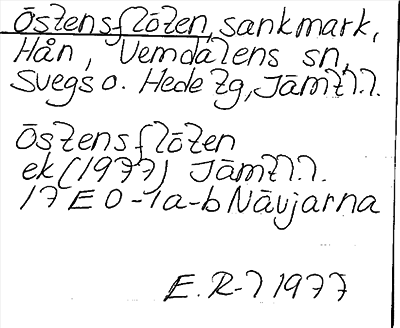 Östensflöten, sankmark,
Hån, Vemdalens sn,
Svegs o. Hede tg, Jämtl.l.
Östensflöten
ek (1977) Jämtl.l.
17E 0-1a-b Nävjarna
E.R-l 1977